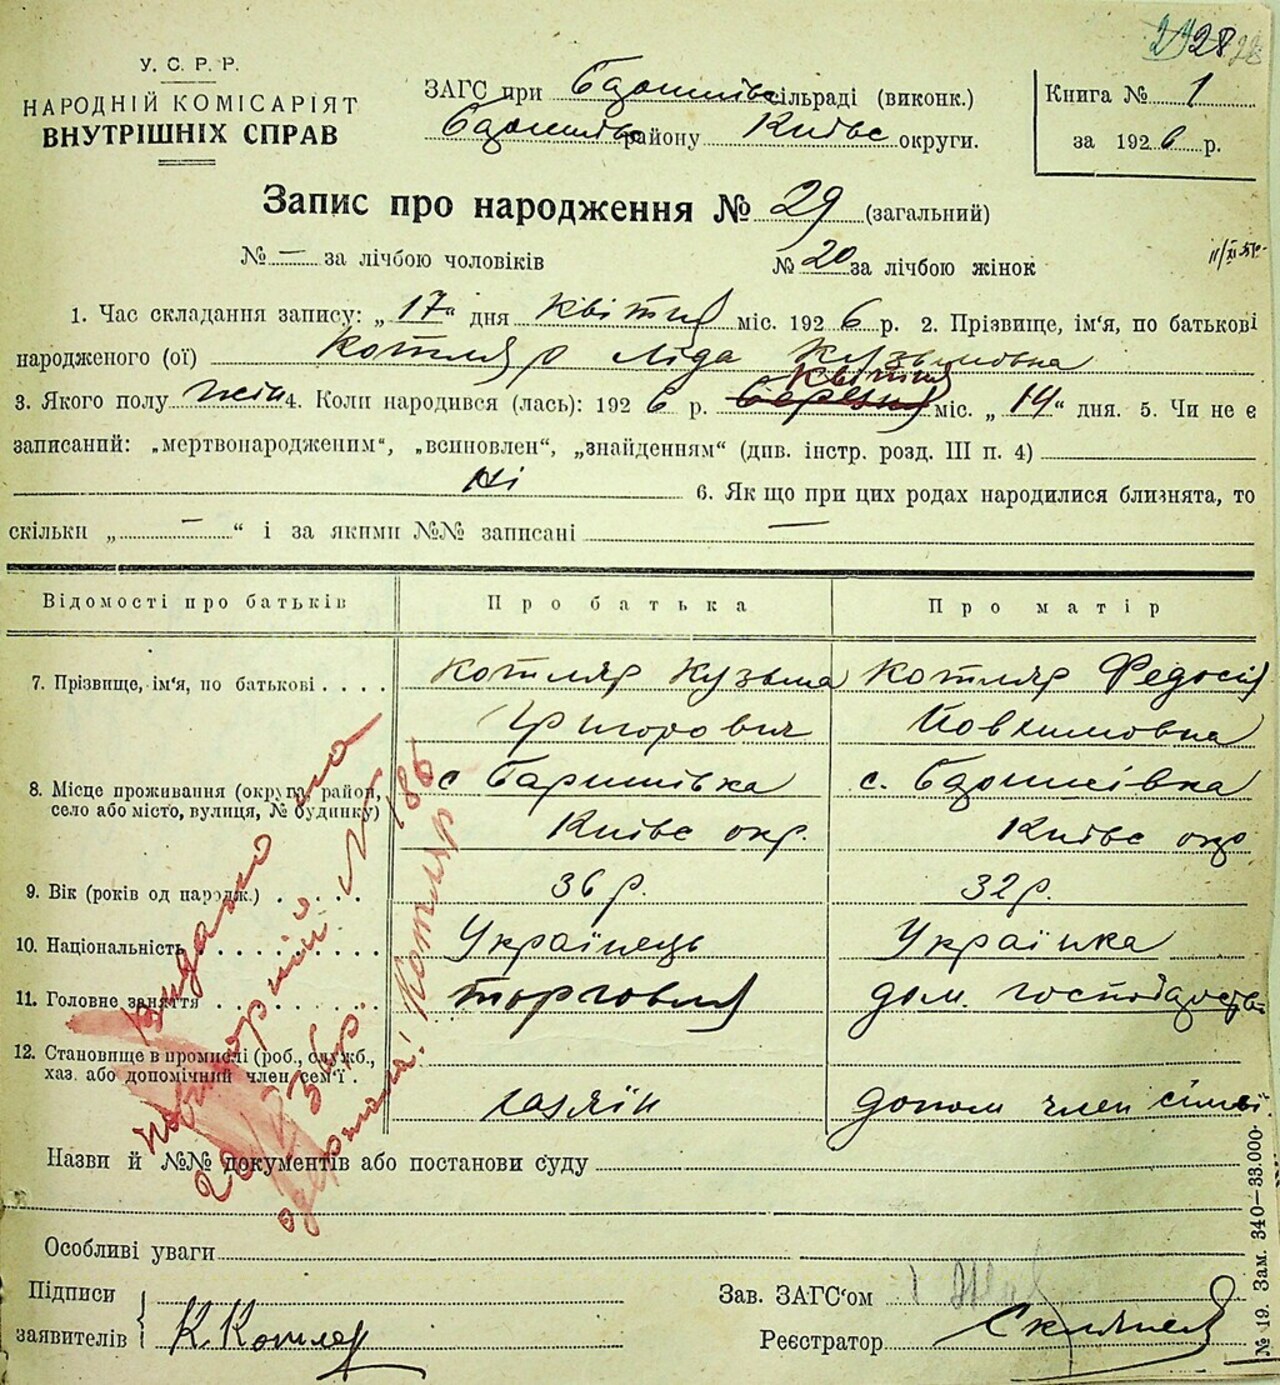 28
У. С. Р. Р.
НАРОДНІЙ КОМІСАРІЯТ
ВНУТРІШНІХ СПРАВ
ЗАГС при сільраді (виконк.)
району Київс округи.
Книга № 1
за 1926 р.
Запис про народження № 29 (загальний)
№ — за лічбою чоловіків
№ 20 за лічбою жінок
1. Час складання запису: „17“ дня Квітня міс. 1926 р. 2. Прізвище, ім‘я, по батькові
народженого (ої) Котляр Ліда Кузьмовна
Квітня
3. Якого полу жін 4. Коли народився (лась): 1926 р. Березня міс. „14“ дня. 5. Чи не є
записаний: „мертвонародженим“, „всиновлен“, „знайденням“ (див. інстр. розд. III п. 4)
Ні 6. Як що при цих родах народилися близнята, то
скільки „ — “ і за якими №№ записані —
Відомості про батьків Про батька Про матір
7. Прізвище, ім‘я, по батькові . . . . Котляр Кузьма Котляр Федосія
Григорович Йовхимовна
8. Місце проживання (округа, район, с Баришівка с.
село або місто, вулиця, № будинку) Київс окр. Київс окр
9. Вік (років од народж.) . . . . 36 р. 32 р.
10. Національність . . . . . . . . Українець Українка
11. Головне заняття . . . . . . . . торговля дом. господарство
12. Становище в промислі (роб., служб.,
хаз. або допомічний член сем‘ї . хазяїн допом член сімї
Видано на
повторний № 186
22/2 36 р.
одержала: Котляр
Назви й №№ документів або постанови суду
Особливі уваги
Підписи
заявителів К. Котляр
Зав. ЗАГС‘ом
Реєстратор
№ 19. Зам. 340—33.000